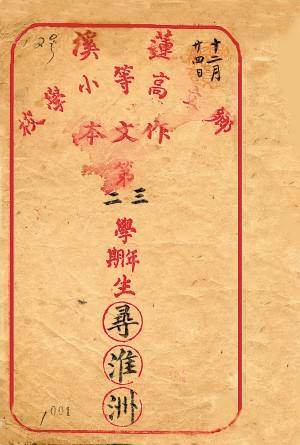 十二月
廿四日
蓮溪
高等小
學校
作文本
第
三二
學
年期
生
尋淮洲
001